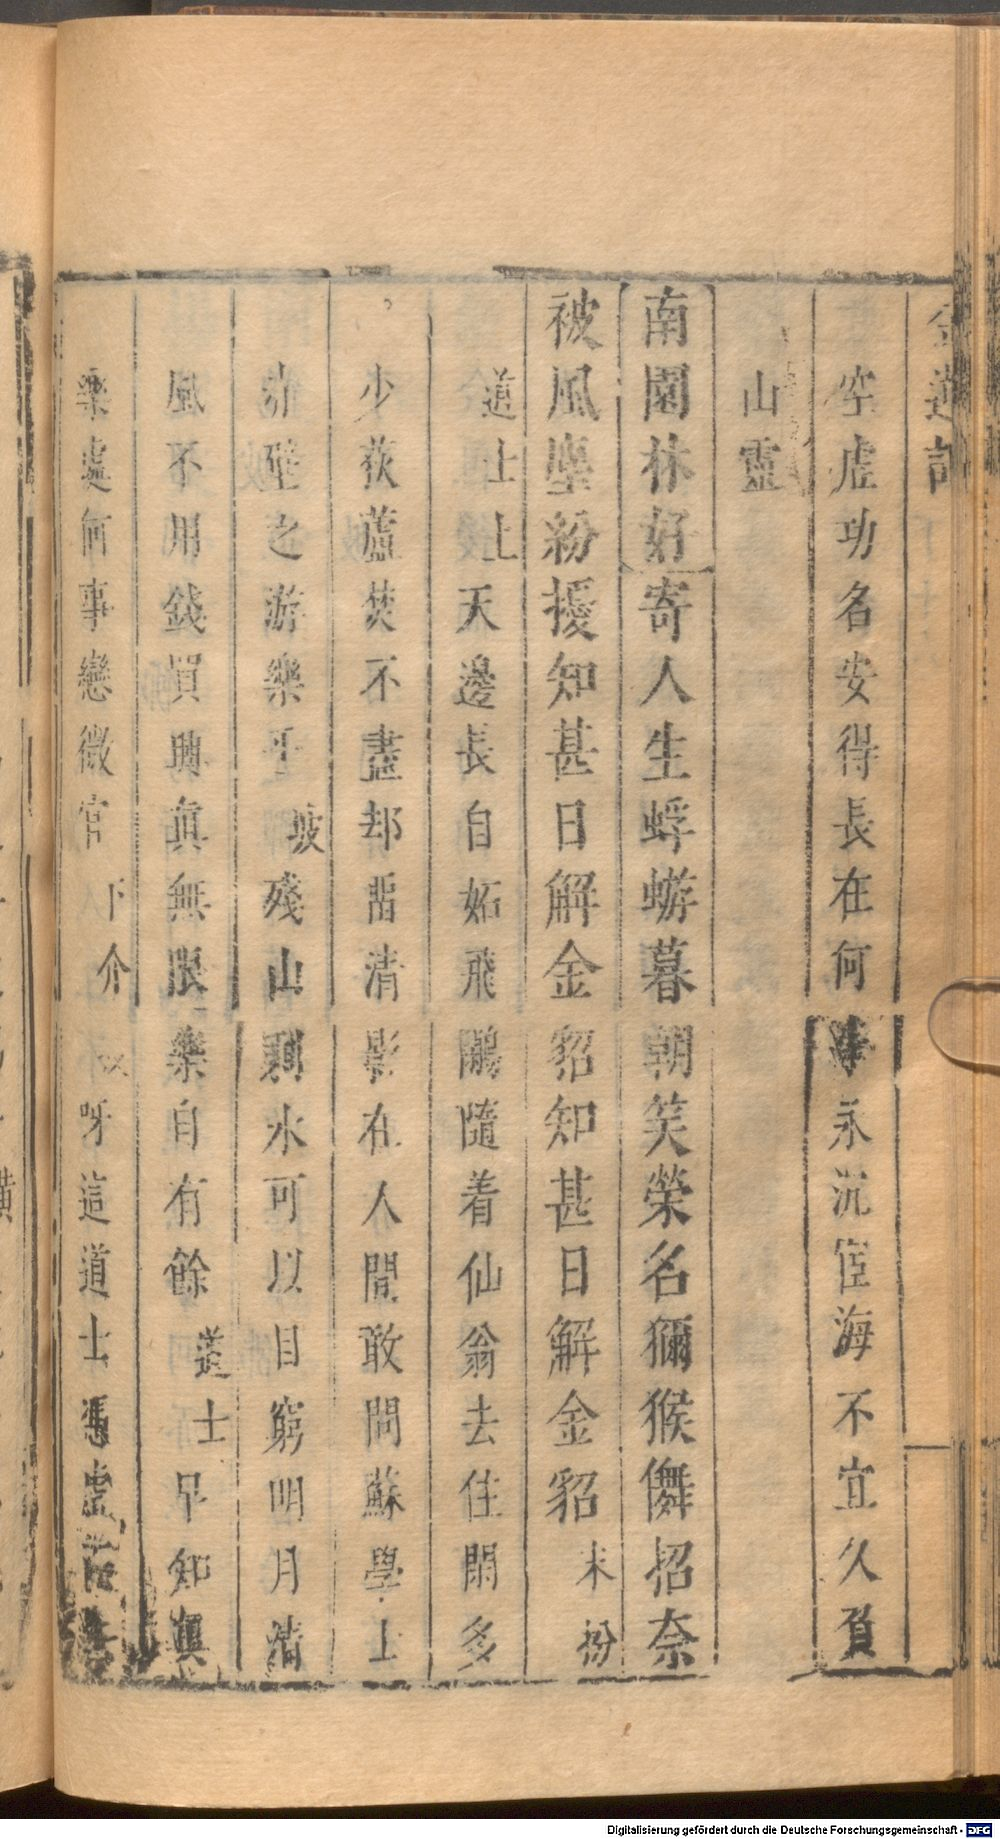 空虛功名安得長在何永沉宦海不宜久負
山靈
南園林好寄人生蜉蝣暮朝笑榮名獼猴儛招奈
被風塵紛擾知甚日解金貂知甚日解金貂末扮
道士上天邊長自妬飛鵬隨着仙翁去住閑多
少荻蘆焚不盡却畱清影在人間敢問蘇學士
赤壁之游樂乎坡殘山剩水可以目窮明月清
風不用錢買興真無限樂自有餘道士早知真
樂處何事戀微官下介呀這道士憑虛
Digitalisierung gefördert durch die Deutsche Forschungsgemeinschaft - DFG